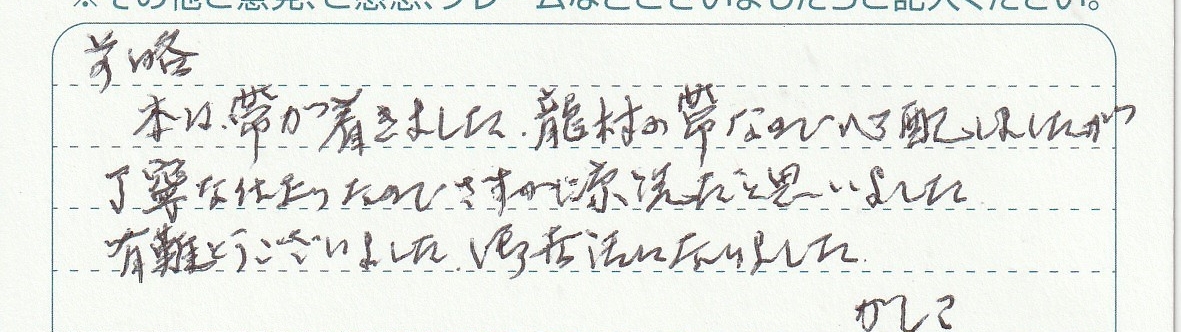 ※その他ご意見、ご感想、クレームなどございましたらご記入ください。
前略
本日、帯が着きました。龍村の帯なので心配しましたが
丁寧な仕立だったのでさすがに京洗だと思いました
有難とうございました。御世話になりました。
かしこ